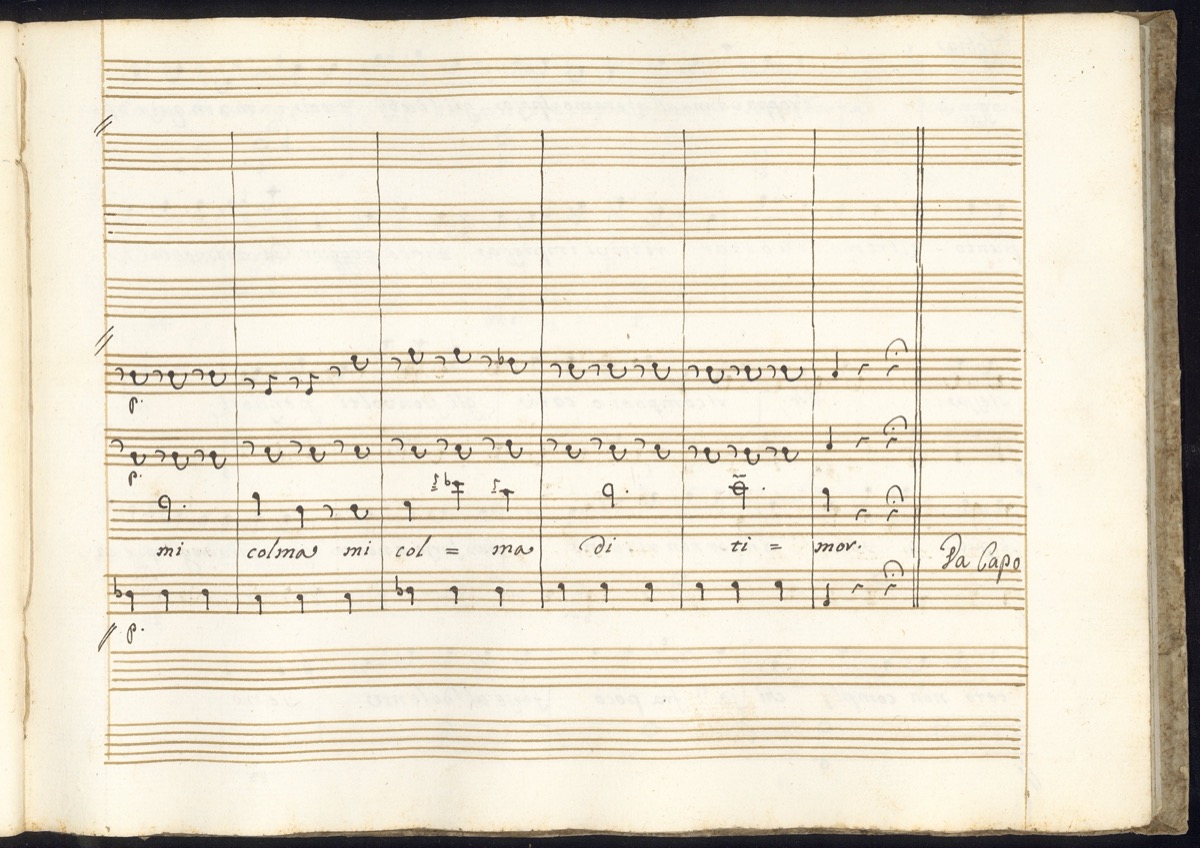 p.
p.
mi colma mi col = ma di ti = mor.
Da Capo
p.